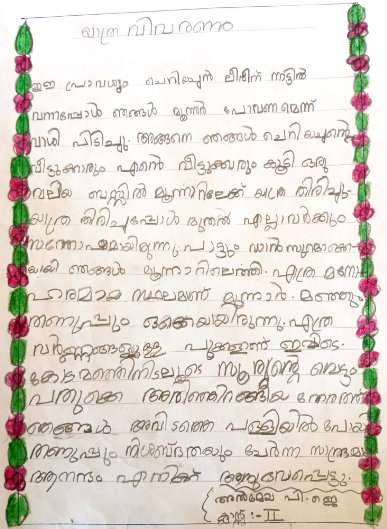 യാത്ര വിവരണം
ഈ പ്രാവശ്യം ചെറിയച്ഛൻ ലീവിന് നാട്ടിൽ
വന്നപ്പോൾ ഞങ്ങൾ മൂന്നാർ പോവണമെന്ന്
വാശി പിടിച്ചു. അങ്ങനെ ഞങ്ങൾ ചെറിയച്ഛന്റെ
വീട്ടുകാരും എന്റെ വീട്ടുക്കാരും കൂടി ഒരു
വലിയ ബസ്സിൽ മൂന്നാറിലേക്ക് യാത്ര തിരിച്ചു.
യാത്ര തിരിച്ചപ്പോൾ മുതൽ എല്ലാവർക്കും
സന്തോഷമായിരുന്നു. പാട്ടും ഡാൻസുമൊക്കെ
യായി ഞങ്ങൾ മൂന്നാറിലെത്തി. എത്ര മനോ
ഹരമായ സ്ഥലമാണ് മൂന്നാർ. മഞ്ഞും
തണുപ്പും ഒക്കെയായിരുന്നു. എത്ര
വർണ്ണങ്ങളുള്ള പൂക്കളാണ് ഇവിടെ.
കോടമഞ്ഞിനിടലൂടെ സൂര്യന്റെ വെട്ടം
പതുക്കെ അരിഞ്ഞിറങ്ങിയ നേരത്ത്
ഞങ്ങൾ അവിടത്തെ പള്ളിയിൽ പോയി
തണുപ്പും നിശബ്ദതയും ചേർന്ന
ആനന്ദം എനിക്ക് അനുഭവപ്പെട്ടു.
പി. ജെ
ക്ലാസ്സ് :- II